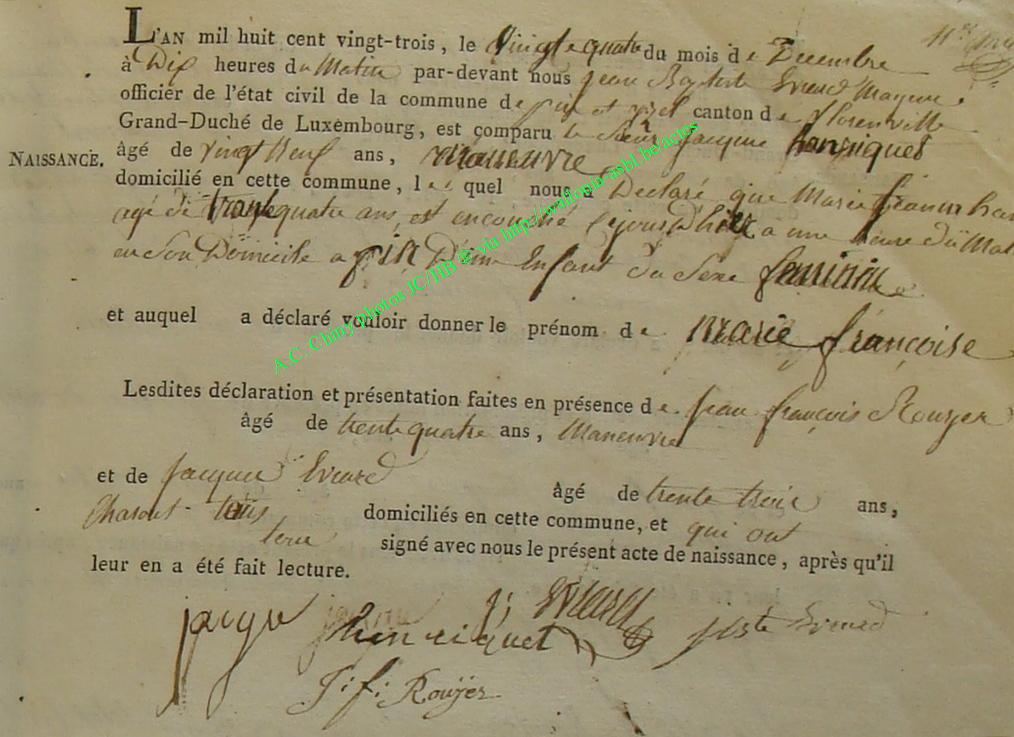 L'AN mil huit cent vingt-trois, le vingt quatre du mois de Decembre
à Dix heures du Matin par-devant nous Jean Baptiste Evrard Mayeur
officier de l'état civil de la commune de pin et izel canton de florenville
Grand-Duché de Luxembourg, est comparu le Sieur Jacque hanriquet
NAISSANCE.
âgé de vingt Neuf ans, Maneuvre
domicilié en cette commune, le quel nous a Déclaré que Marie
agé de trante quatre ans, est encouché a une heure du
en Son Domicile a pin D'un Enfant du Sexe feminin
et auquel a déclaré vouloir donner le prénom de Marie françoise
Lesdites déclaration et présentation faites en présence de jean françois Rouyer
âgé de trente quatre ans, Maneuvre
et de Jacque Evrard
âgé de trente trois ans,
tous domiciliés en cette commune, et qui ont
tous signé avec nous le présent acte de naissance, après qu'il
leur en a été fait lecture.
jacque Evrard
J: f: Rouyer
A.C. Chiny photos JC/HB & via http://wallonia-asbl.be/actes